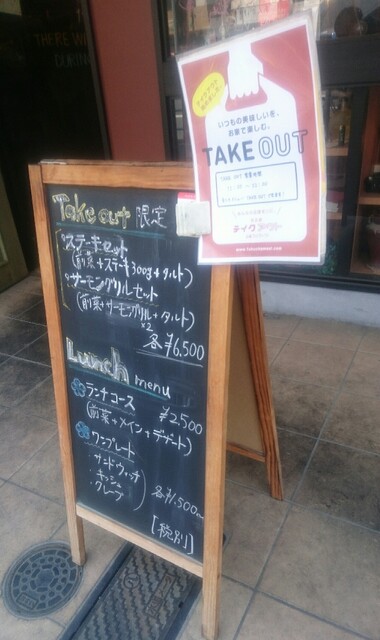 THERE W
いつもの美味しいを、
お家で楽しむ。
TAKE OUT
Take out 限定
・ステーキセット
(前菜+ステーキ300g+タルト)
・サーモングリルセット
(前菜+サーモングリル+タルト)
×2
各¥6,500
Lunch menu
ランチコース
¥2,500
(前菜+メイン+デザート)
ワンプレート
・サンドウィッチ
・キッシュ
・クレープ
各¥1,500~
[税別]